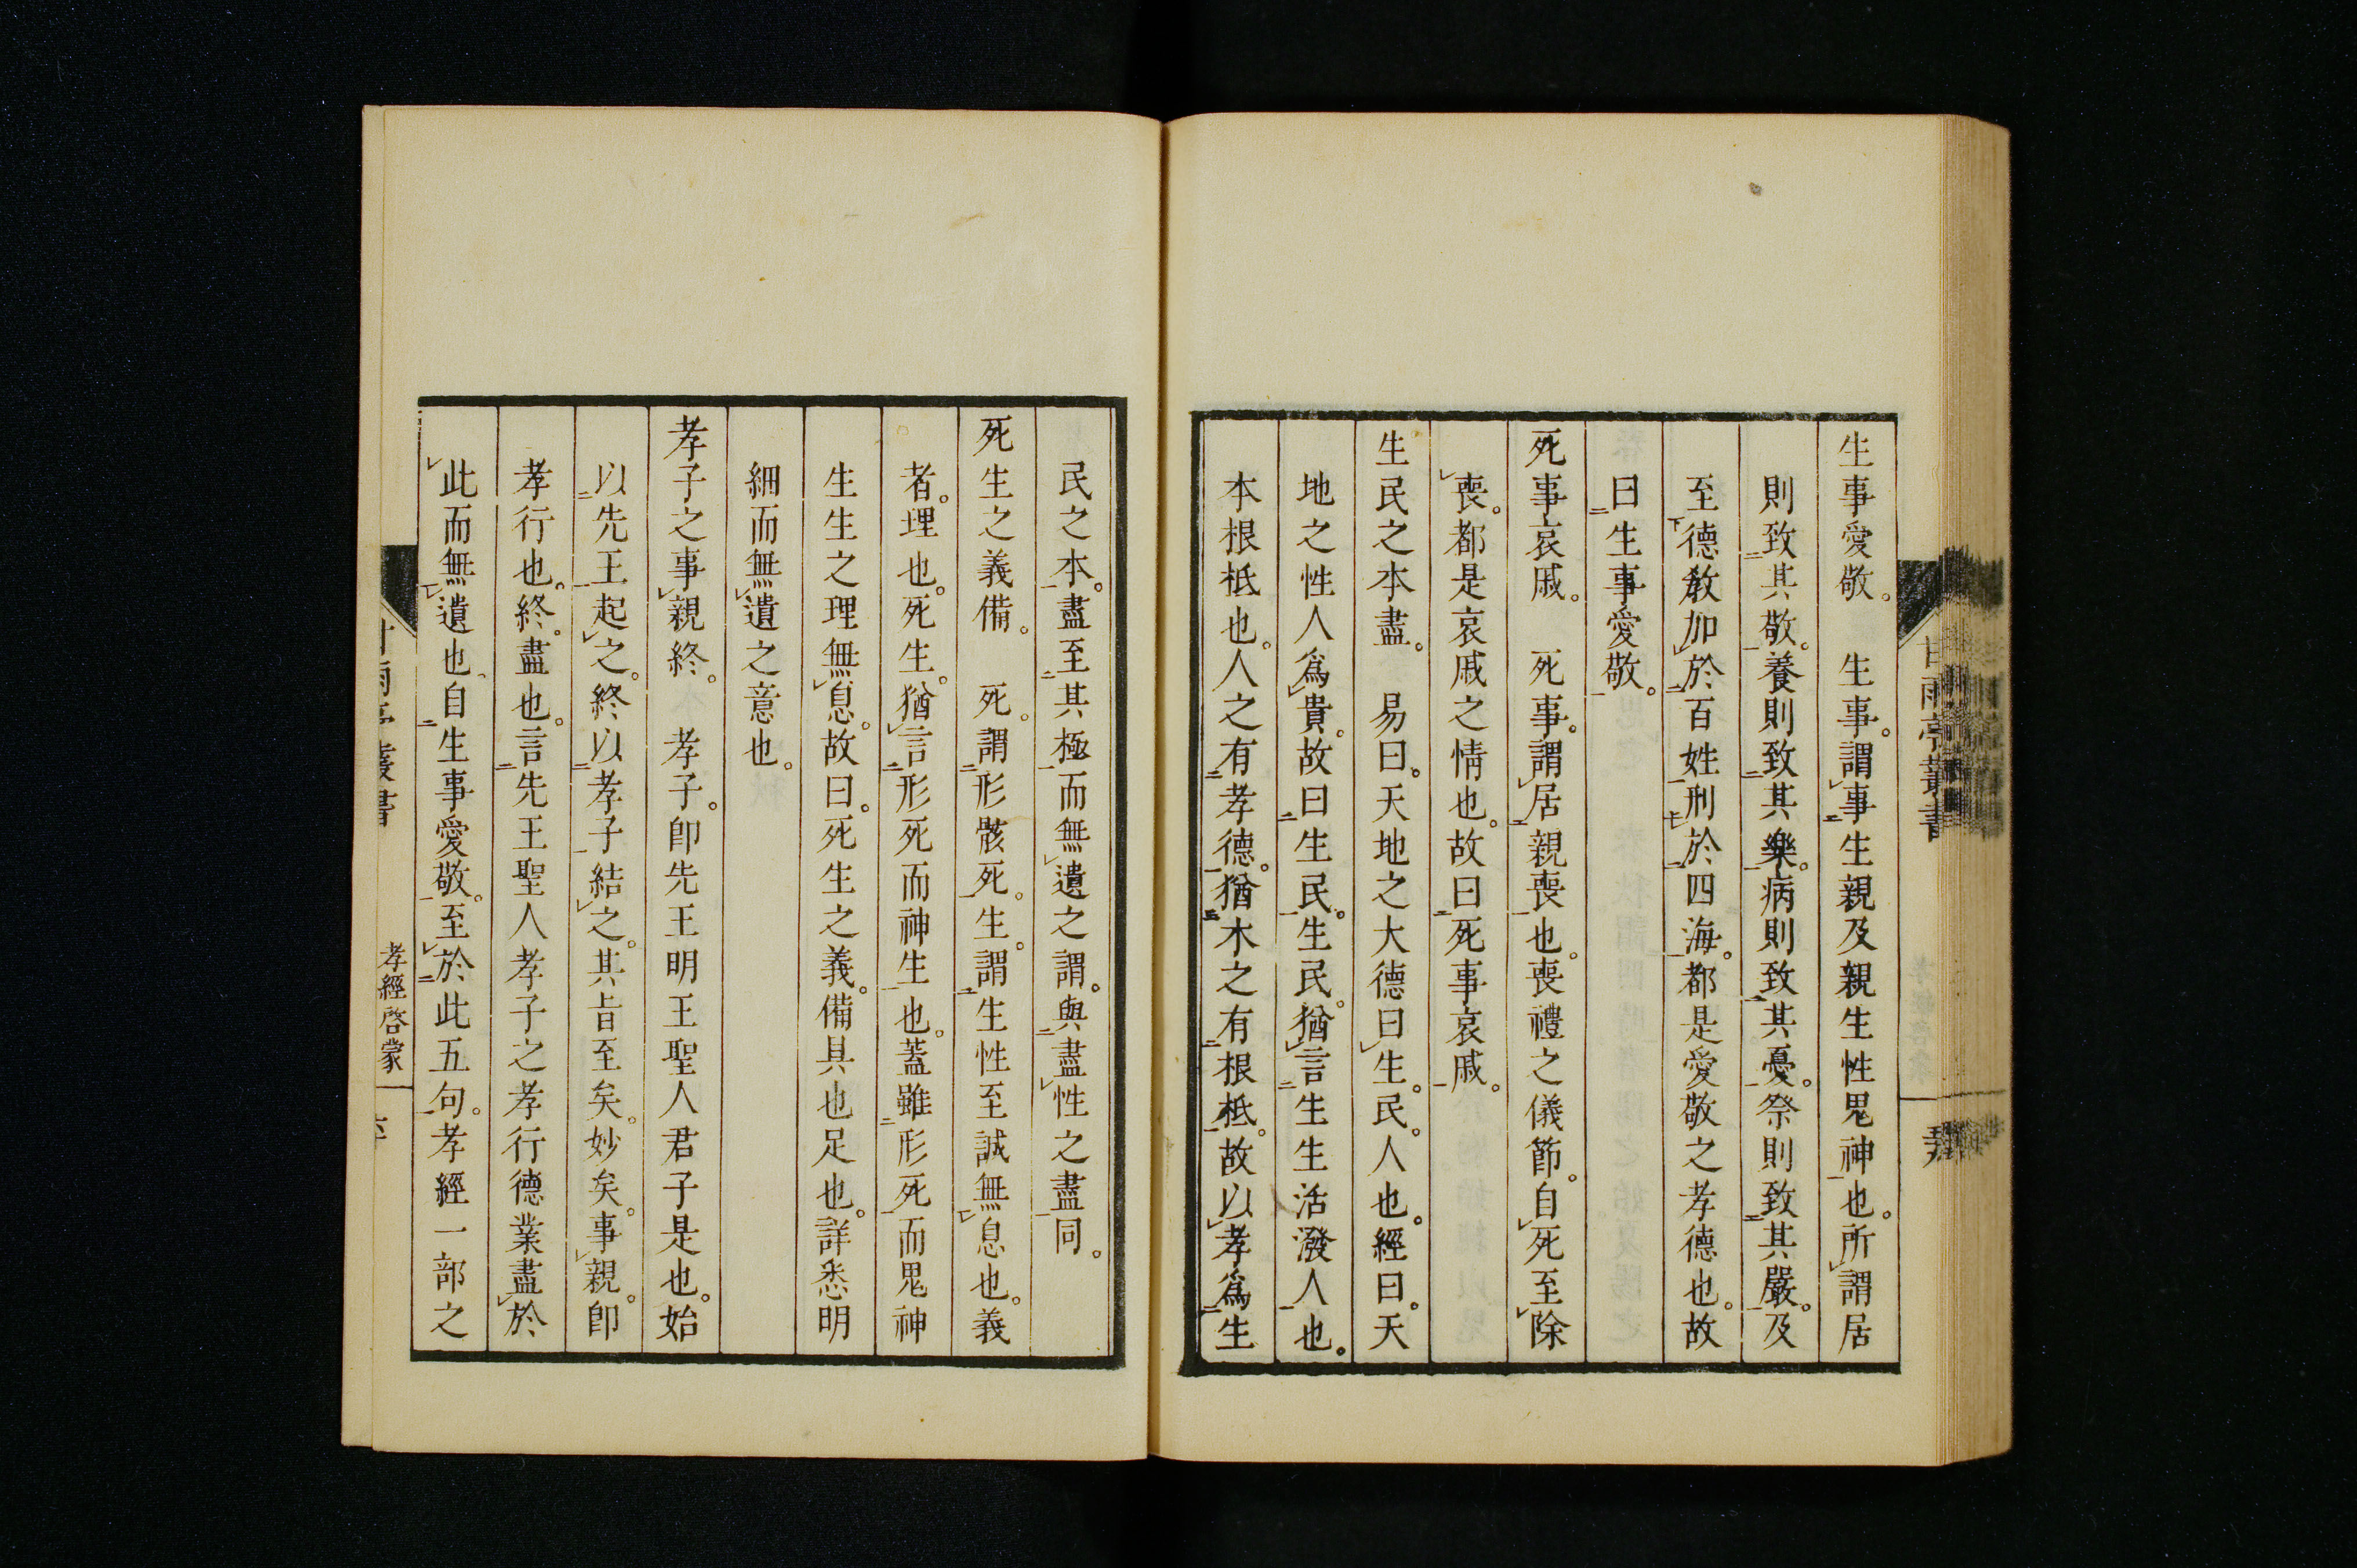 生事愛敬。　生事。謂事生親及親生性鬼神也。所謂居
則致其敬。養則致其樂。病則致其憂。祭則致其嚴。及
至德敎加於百姓刑於四海。都是愛敬之孝德也。故
曰生事愛敬。
死事哀戚。　死事。謂居親喪也。喪禮之儀節。自死至除
喪。都是哀戚之情也。故曰死事哀戚。
生民之本盡。　易曰。天地之大德曰生。民。人也。經曰。天
地之性人爲貴。故曰生民。生民。猶言生生活潑人也。
本根柢也。人之有孝德。猶木之有根柢。故以孝爲生
民之本。盡至其極而無遺之謂。與盡性之盡同。
死生之義備。　死。謂形骸死。生。謂生性至誠無息也。義
者。理也。死生。猶言形死而神生也。蓋雖形死而鬼神
生生之理無息。故曰。死生之義。備具也足也。詳悉明
細而無遺之意也。
孝子之事親終。　孝子。卽先王明王聖人君子是也。始
以先王起之。終以孝子結之。其旨至矣。妙矣。事親。卽
孝行也。終。盡也。言先王聖人孝子之孝行德業盡於
此而無遺也、自生事愛敬。至於此五句。孝經一部之
孝經啓蒙